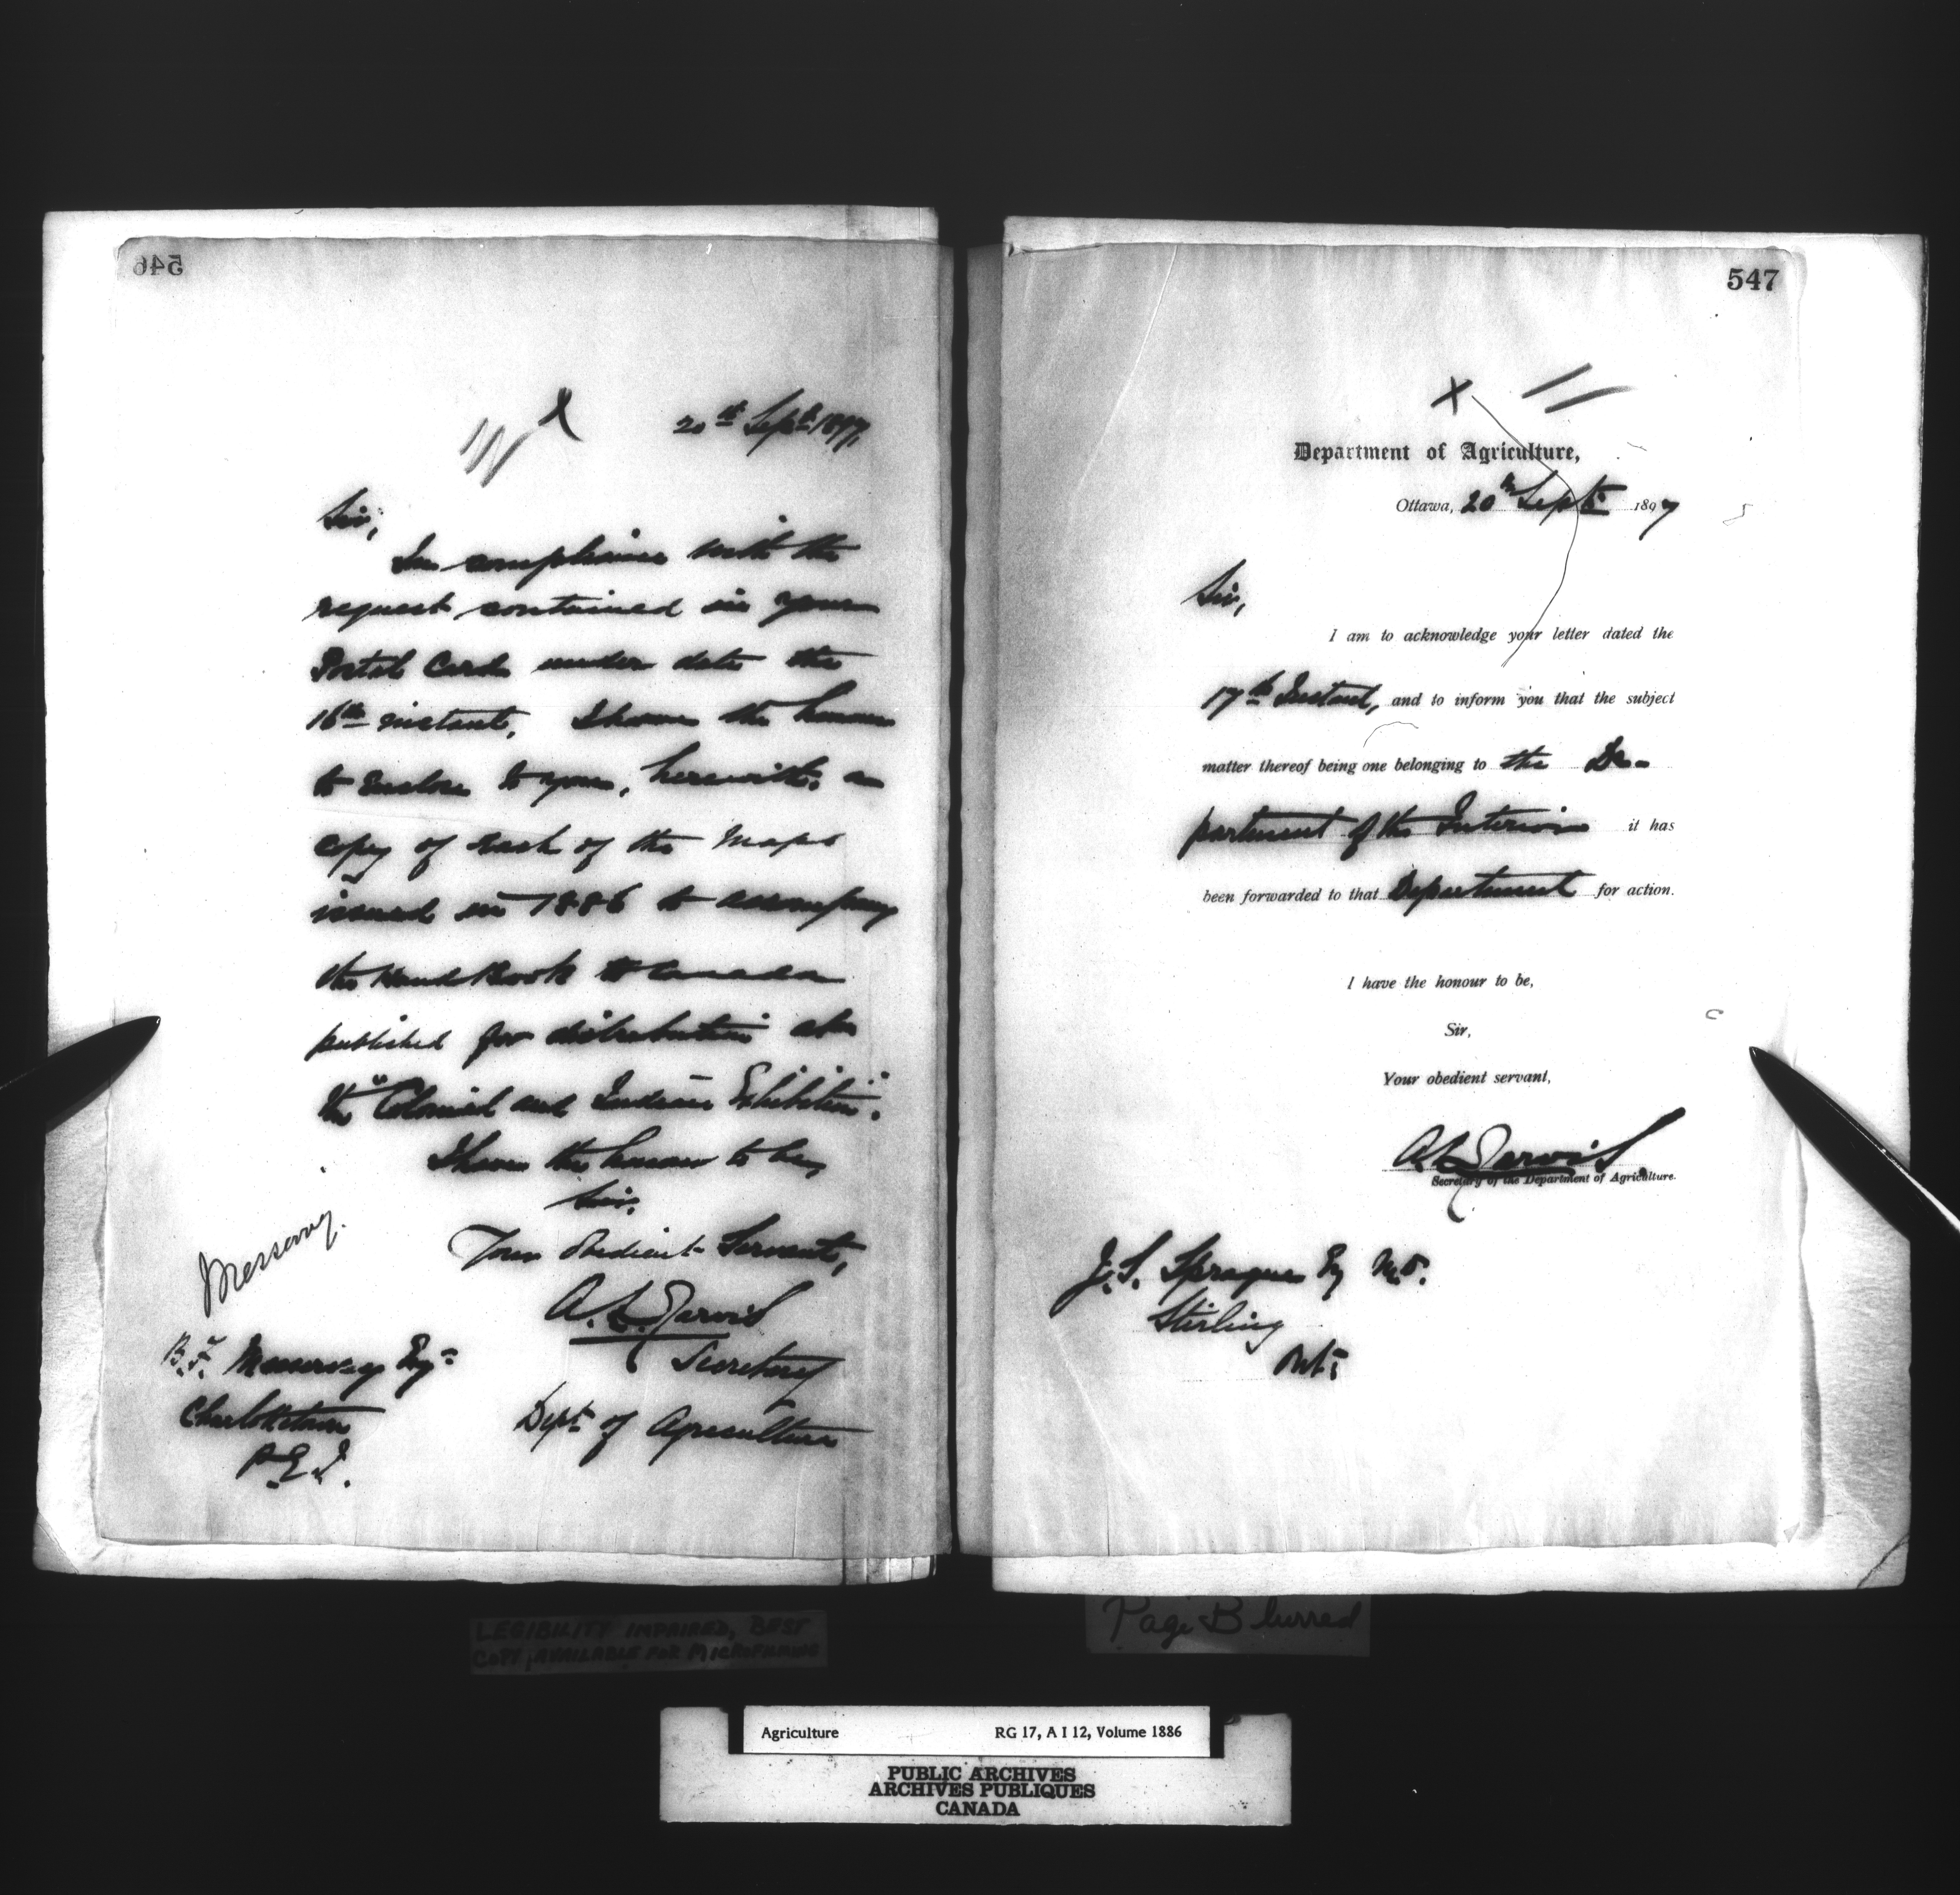 546
20th Sept. 1897.
Sir,
In compliance with the
request contained in your
Postal Card under date the
16th instant, I have the honour
to enclose to you, herewith, a
copy of each of the Maps
issued in 1886 to accompany
the Hand Book to Canada
published for distribution at
the "Colonial and Indian Exhibition".
I have the honour to be,
Sir,
Your obedient Servant,
A. L. Jarvis
Secretary
Dept. of Agriculture
Messervy.
B. F. Messervey Esqr
Charlottetown
P.E.I.
547
X
Department of Agriculture,
Ottawa, 20th Sept. 1897
Sir,
I am to acknowledge your letter dated the
17th Instant, and to inform you that the subject
matter thereof being one belonging to the De-
partment of the Interior it has
been forwarded to that Department for action.
I have the honour to be,
Sir,
Your obedient servant,
A L Jarvis
Secretary of the Department of Agriculture.
J. S. Sprague Esq M.D.
Stirling
Ont.
LEGIBILITY IMPAIRED, BEST
COPY AVAILABLE FOR MICROFILMING
Page Blurred
Agriculture RG 17, A I 12, Volume 1886
PUBLIC ARCHIVES
ARCHIVES PUBLIQUES
CANADA